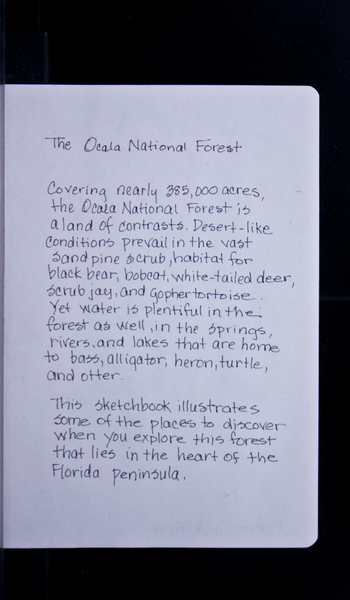 The Ocala National Forest
Covering nearly 385,000 acres,
the Ocala National Forest is
a land of contrasts. Desert-like
conditions prevail in the vast
sand pine scrub, habitat for
black bear, bobcat, white-tailed deer,
scrub jay, and gopher tortoise.
Yet water is plentiful in the
forest as well, in the springs,
rivers, and lakes that are home
to bass, alligator, heron, turtle,
and otter.
This sketchbook illustrates
some of the places to discover
when you explore this forest
that lies in the heart of the
Florida peninsula.